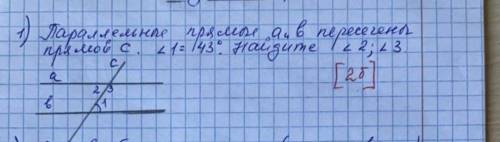 1) Параллельные прямые а и в пересечены
прямой с. ∠1 = 43°. Найдите ∠2; ∠3
[2б]
с
а
2 3
в
1